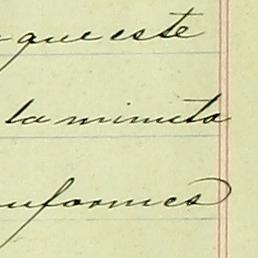 que este
la minuta
informes